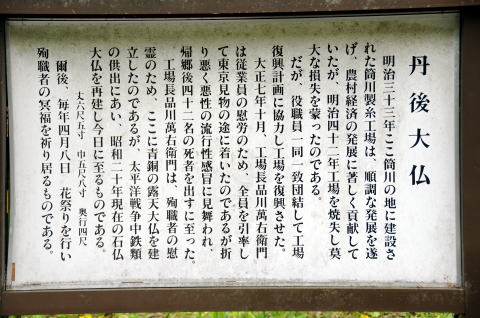 丹後大仏
明治三十三年ここ筒川の地に建設さ
れた筒川製糸工場は、順調な発展を遂
げ、農村経済の発展に著しく貢献して
いたが、明治四十二年工場を焼失し莫
大な損失を蒙ったのである。
だが、役職員一同一致団結して工場
復興計画に協力し工場を復興させた。
大正七年十月、工場長品川萬右衛門
は従業員の慰労のため、全員を引率し
て東京見物の途に着いたのであるが折
り悪く悪性の流行性感冒に見舞われ、
帰郷後四十二名の死者を出すに至った。
工場長品川萬右衛門は、殉職者の慰
霊のため、ここに青銅の露天大仏を建
立したのであるが、太平洋戦争中鉄類
の供出にあい、昭和二十年現在の石仏
大仏を再建し今日に至るものである。
丈六尺五寸 巾五尺八寸 奥行四尺
爾後、毎年四月八日 花祭りを行い
殉職者の冥福を祈り居るものである。